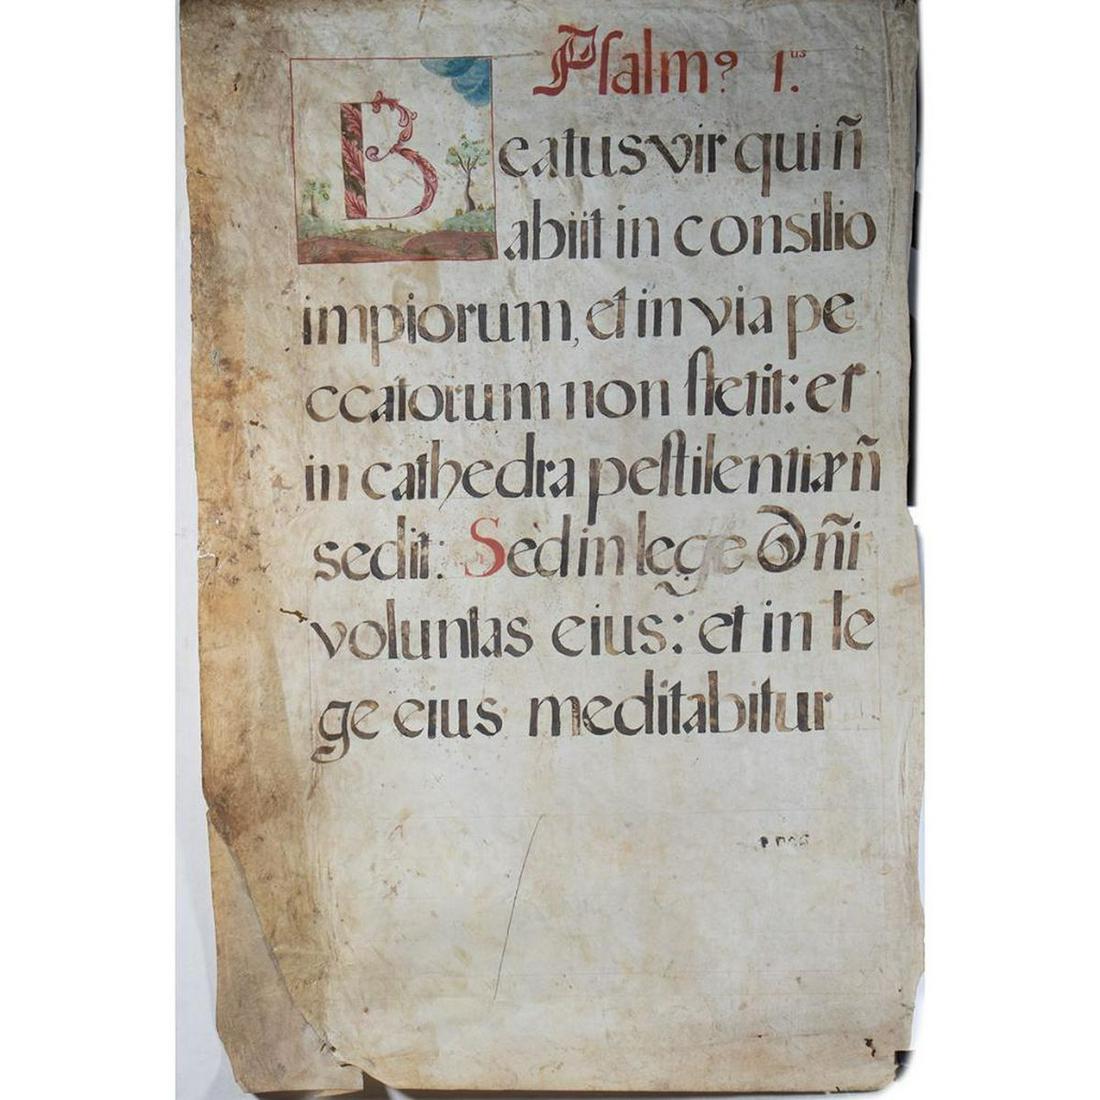 Psalm⁹ 1.us
Beatus vir qui ñ
abiit in consilio
impiorum, et in via pe
ccatorum non ſtetit: et
in cathedra peſtilentiæ ñ
sedit: Sed in lege Dñi
voluntas eius: et in le
ge eius meditabitur